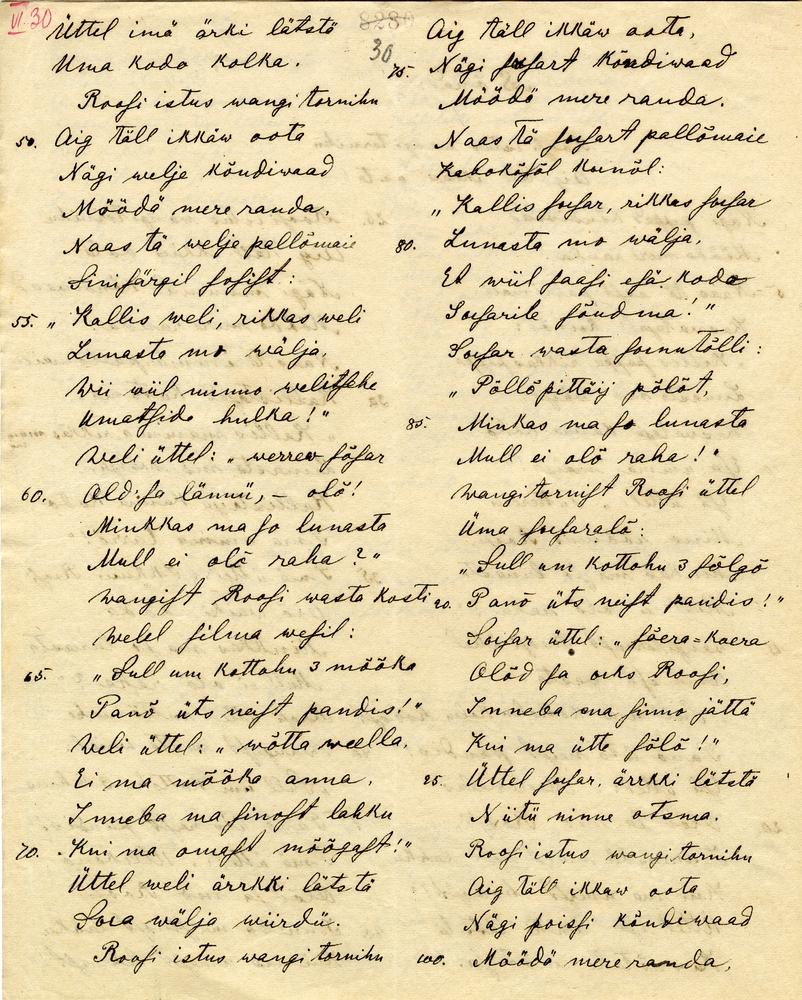 VI. 30
30
Üttel imä ärki lätstä
Uma kodo kolka.
Roosi istus wangi tornihn
50. Aig täll ikkäw oota
Nägi welje kõndiwaad
Möödä mere randa.
Naas tä welje pallõmaie
Sinisärgil sõsist:
55. „Kallis weli, rikkas weli
Lunasta mo wälja.
Wii wiil minno welitsehe
Umatside hulka!"
Weli üttel: „werrew sõsar
60. Old: sa lännü, – olõ!
Minkkas ma so lunasta
Mull ei olõ raha?"
Wangist Roosi wasta kosti
Welel silma wesil:
65. „Sull um kottohn 3 mõõka
Panõ üts neist pandis!"
Weli üttel: „wõtta weella.
Ei ma mõõka anna.
Inneba ma sinost lahku
70. Kui ma omast mõõgast!"
Üttel weli ärrkki lätstä
Soea wälja wiirdü.
Roosi istus wangi tornihn
Aig täll ikkäw oota,
75. Nägi sõsart kõndiwaad
Möödä mere randa.
Naas tä sõsart pallõmaie
Kabokõsõl keenõl:
„Kallis sõsar, rikkas sõsar
80. Lunasta mo wälja.
Et wiil saasi esä kodo
Sõsarile sõudma!"
Sõsar wasta sõnnutõlli:
„Põllõpittäij põlõt,
85. Minkas ma so lunasta
Mull ei olõ raha!"
Wangitornist Roosi üttel
Üma sõsaralõ:
„Sull um kottohn 3 sõlgõ
90. Panõ üts neist pandis!"
Sõsar üttel: „sõera=koera
Olõd sa oeks Roosi,
Inneba ma sinno jättä
Kui ma ütte sõlõ!"
95. Üttel sõsar, ärrkki lätstä
Niitü ninne otsma.
Roosi istus wangi tornihn
Aig täll ikkaw oota
Nägi poissi kõndiwaad
100. Möödä mere randa,